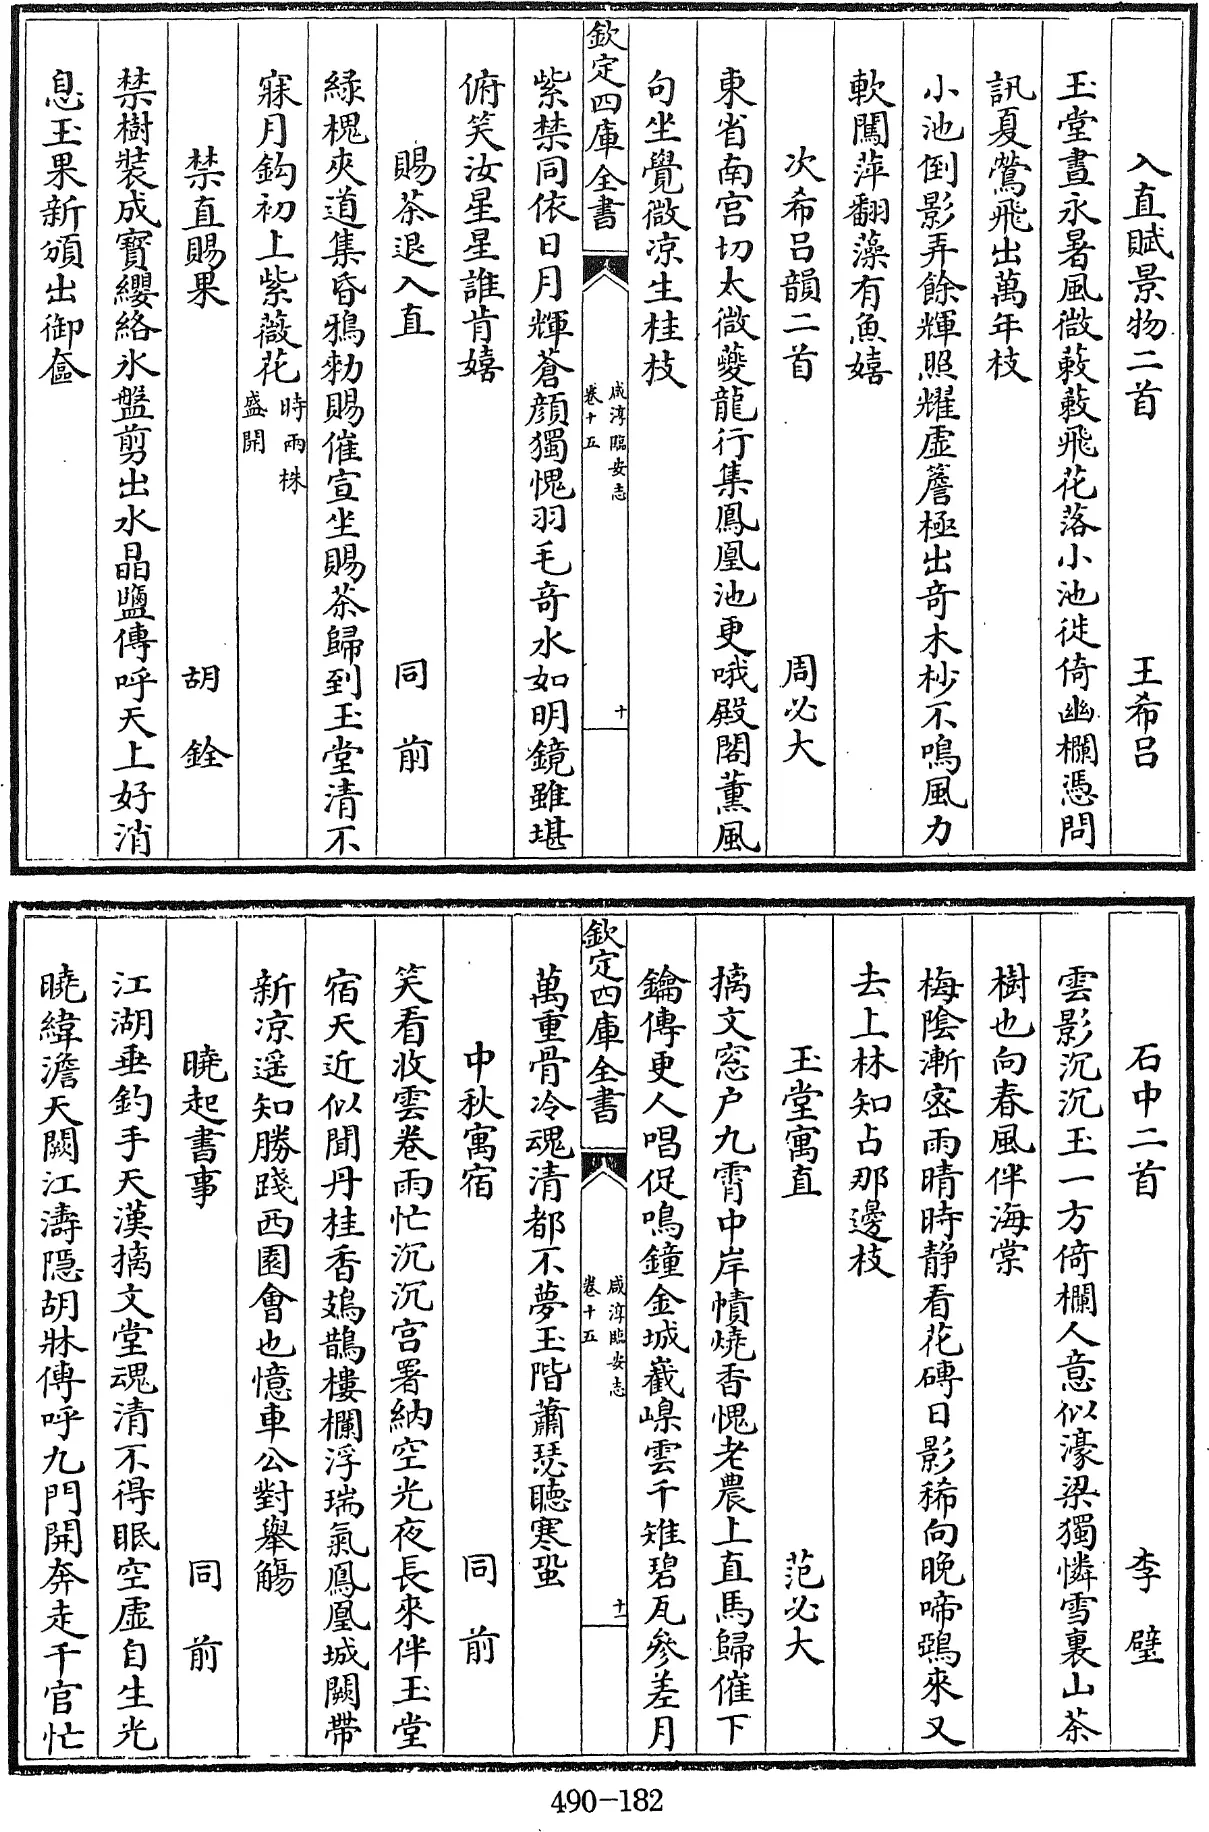 入直賦景物二首 王希吕
玉堂晝永暑風微蔌蔌飛花落小池徙倚幽欄憑問
訊夏鶯飛出萬年枝
小池倒影弄餘輝照耀虚簷極出竒木杪不鳴風力
軟闖萍翻藻有魚嬉
次希吕韻二首 周必大
東省南宫切太微夔龍行集鳳凰池更哦殿閣薰風
句坐覺微凉生桂枝
欽定四庫全書
咸淳臨安志
卷十五
十
紫禁同依日月輝蒼顔獨愧羽毛竒水如明鏡雖堪
俯笑汝星星誰肯嬉
賜茶退入直 同前
緑槐夾道集昏鴉勅賜催宣坐賜茶歸到玉堂清不
寐月鈎初上紫薇花時兩株
盛開
禁直賜果 胡銓
禁樹裝成寶纓絡氷盤剪出水晶鹽傳呼天上好消
息玉果新頒出御奩
石中二首 李璧
雲影沉沉玉一方倚欄人意似濠梁獨憐雪裏山茶
樹也向春風伴海棠
梅陰漸宻雨晴時静看花磚日影稀向晚啼鵶來又
去上林知占那邊枝
玉堂寓直 范必大
摛文窓户九霄中岸幘燒香愧老農上直馬歸催下
鑰傳更人唱促鳴鐘金城嶻嵲雲千雉碧瓦參差月
欽定四庫全書
咸淳臨安志
卷十五
十一
萬重骨冷魂清都不夢玉階蕭瑟聽寒蛩
中秋寓宿 同前
笑看收雲卷雨忙沉沉宫署納空光夜長來伴玉堂
宿天近似聞丹桂香鳷鵲樓欄浮瑞氣鳳凰城闕帶
新凉遥知勝踐西園會也憶車公對舉觴
曉起書事 同前
江湖垂釣手天漢摛文堂魂清不得眠空虚自生光
曉緯澹天闕江濤隠胡牀傳呼九門開奔走千官忙
490-182